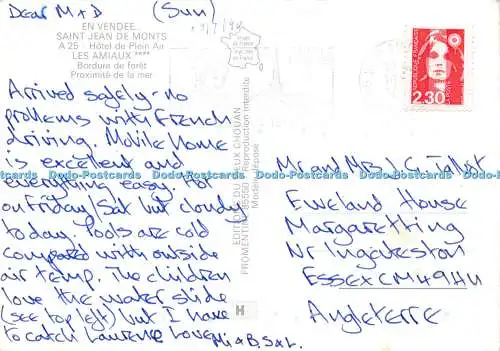 Dear M + D (Sun)
EN VENDEE...
SAINT JEAN DE MONTS
A 25 - Hôtel de Plein Air
LES AMIAUX ****
Bordure de forêt
Proximité de la mer
Arrived safely - no
problems with French
driving. Mobile Home
is excellent and
everything easy. Hot
on Friday/Sat but cloudy
today. Pools are cold
compared with outside
air temp. The children
love the water slide
(see top left) but I have
to catch Laurence Love
M i & B, S & L.
FROMENTINE
85550
Reproduction interdite
Modèle déposé
H
REPUBLIQUE FRANÇAISE
2,30
Mr and Mrs J.C. Tallet
Eweland House
Margaretting
Nr Ingatestone
ESSEX CM4 9HU
Angleterre
Dodo-Postcards Dodo-Postcards Dodo-Postcards Dodo-Postcards